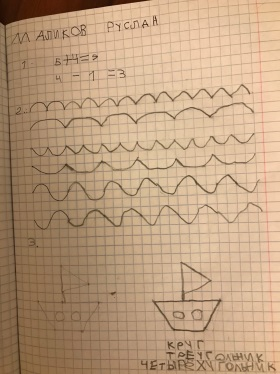 МАЛИКОВ РУСЛАН
1. 5+4=9
4 - 1 = 3
2.
3.
КРУГ
ТРЕУГОЛЬНИК
ЧЕТЫРЁХУГОЛЬНИК